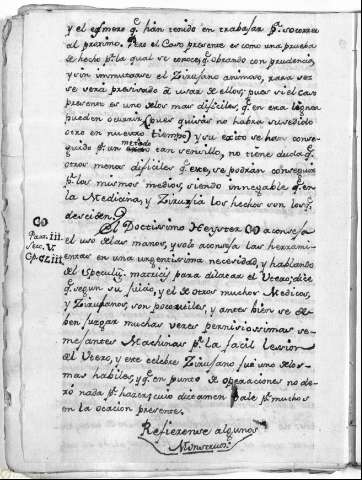 y el esmero q.e han tenido en trabajar p.a socorrer
al proximo. Pero el Caso presente es como una prueba
de hecho p.r la qual se conoce, q.e obrando con prudencia,
y sin inmutarse el Zirujano animoso, rara vez
se verá precisado á usar de ellos; pues si el caso
presente es uno de los mas dificiles, q.e en esta
pueden ocurrir, (pues quizás no habra sucedido
otro en nuestro tiempo) y su exito se han conse-
guido p.r un metodo tan sencillo, no tiene duda q.e
otros menos dificiles q.e este, se podrán conseguir
p.r los mismos medios, siendo innegable q.e en
la Medicina, y Ziruxia los hechos son los q.e
deciden.
El Doctissimo Heyster aconseja
Part. III.
Sec. V.
Cp. CLIII
el uso de las manos, y solo aconseja las herramí-
entas en una urgentissima necesidad, y hablando
del Speculū matricis para dilatar el Utero; dice
q.e segun su juicio, y el de otros muchos Medicos,
y Zirujanos, son poco utiles, y antes bien se de-
ben juzgar muchas veces perniciossimas se-
mejantes Machinas p.r la facil lesion
del Utero, y este celebre Zirujano fué uno de los
mas habiles, y q.e en punto de operaciones no de-
xó nada p.r hazer; cuio dictamen vale p.r muchos
en la ocacion presente.
Refierense algunos
Monstruos.